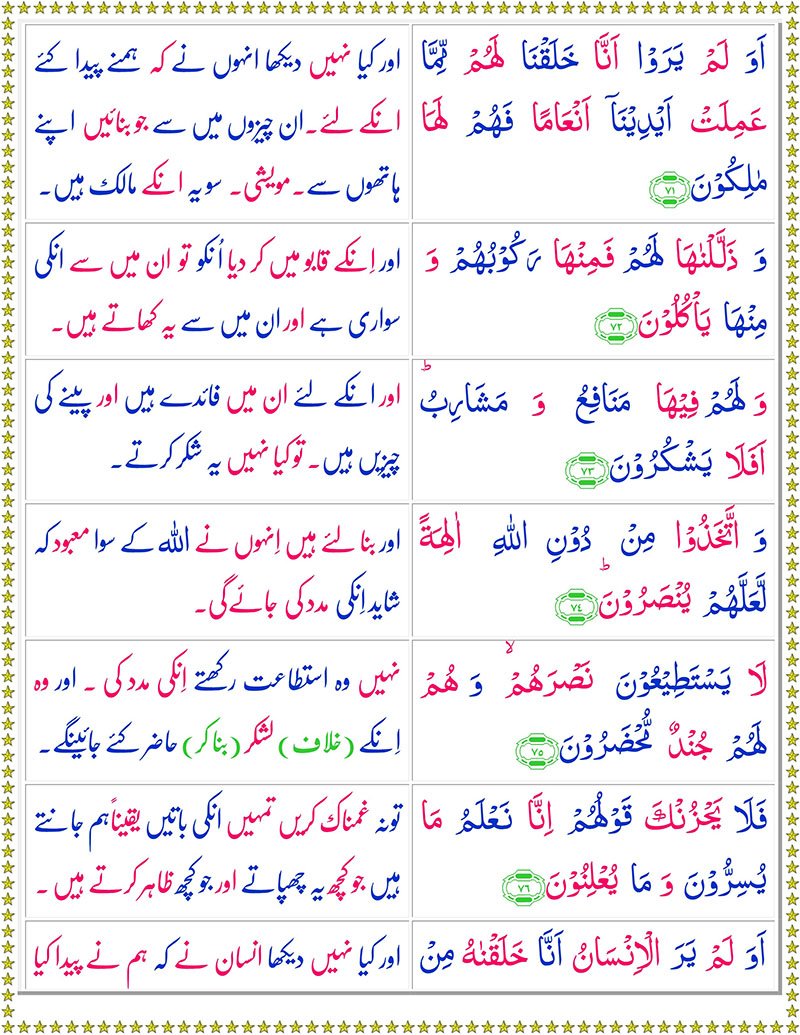 اَوَ لَمْ يَرَوْا اَنَّا خَلَقْنَا لَهُمْ مِّمَّا
عَمِلَتْ اَيْدِيْنَاۤ اَنْعَامًا فَهُمْ لَهَا
مٰلِكُوْنَ ﴿۷۱﴾
اور کیا نہیں دیکھا انہوں نے کہ ہمنے پیدا کئے
انکے لئے۔ ان چیزوں میں سے جو بنائیں اپنے
ہاتھوں سے۔ مویشی۔ سو یہ انکے مالک ہیں۔
وَ ذَلَّلْنٰهَا لَهُمْ فَمِنْهَا رَكُوْبُهُمْ وَ
مِنْهَا يَاْكُلُوْنَ ﴿۷۲﴾
اور اِنکے قابو میں کر دیا اُنکو تو ان میں سے انکی
سواری ہے اور ان میں سے یہ کھاتے ہیں۔
وَ لَهُمْ فِيْهَا مَنَافِعُ وَ مَشَارِبُ ؕ
اَفَلَا يَشْكُرُوْنَ ﴿۷۳﴾
اور انکے لئے ان میں فائدے ہیں اور پینے کی
چیزیں ہیں۔ تو کیا نہیں یہ شکر کرتے۔
وَ اتَّخَذُوْا مِنْ دُوْنِ اللّٰهِ اٰلِهَةً
لَّعَلَّهُمْ يُنْصَرُوْنَ ؕ ﴿۷۴﴾
اور بنا لئے ہیں اِنہوں نے اللہ کے سوا معبود کہ
شاید اِنکی مدد کی جائے گی۔
لَا يَسْتَطِيْعُوْنَ نَصْرَهُمْ ۙ وَ هُمْ
لَهُمْ جُنْدٌ مُّحْضَرُوْنَ ﴿۷۵﴾
نہیں وہ استطاعت رکھتے اِنکی مدد کی ۔ اور وہ
اِنکے (خلاف) لشکر (بنا کر) حاضر کئے جائینگے۔
فَلَا يَحْزُنْكَ قَوْلُهُمْ اِنَّا نَعْلَمُ مَا
يُسِرُّوْنَ وَ مَا يُعْلِنُوْنَ ﴿۷۶﴾
تو نہ غمناک کریں تمہیں انکی باتیں یقیناً ہم جانتے
ہیں جو کچھ یہ چھپاتے اور جو کچھ ظاہر کرتے ہیں ۔
اَوَ لَمْ يَرَ الْاِنْسَانُ اَنَّا خَلَقْنٰهُ مِنْ
اور کیا نہیں دیکھا انسان نے کہ ہم نے پیدا کیا